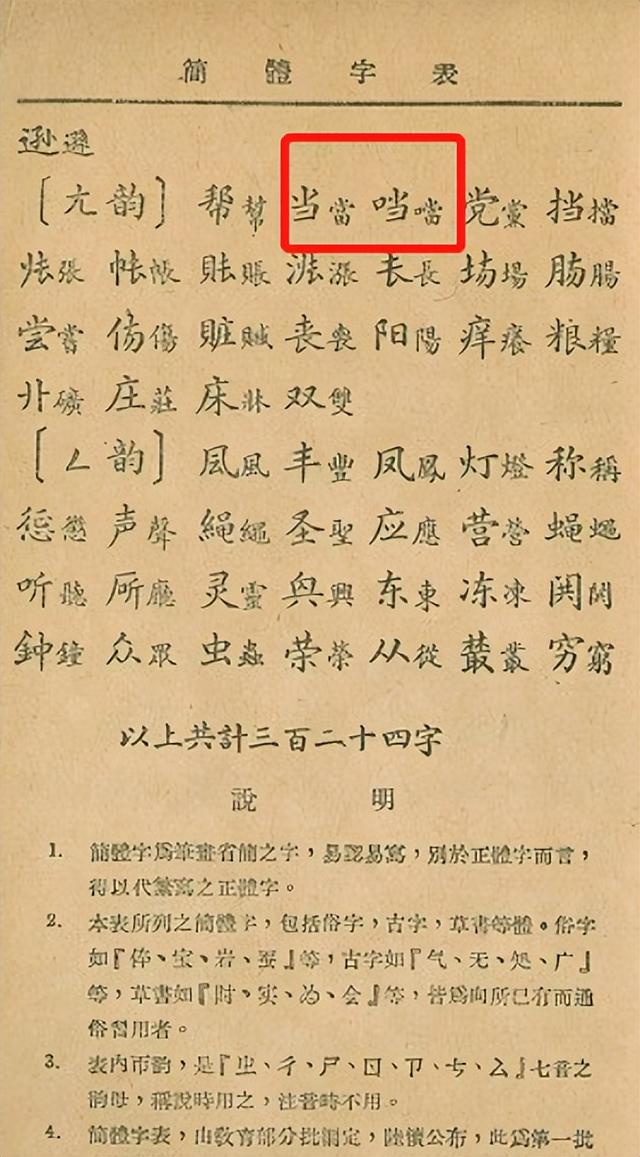 簡體字表
逊遜
〔ㄤ韵〕 帮幫 当當 噹 党黨 挡擋
张張 帐帳 账賬 涨漲 长長 场場 肠腸
尝嘗 伤傷 赃贓 丧喪 阳陽 痒癢 粮糧
礦 庄莊 床牀 双雙
〔ㄥ韵〕 風 丰豐 凤鳳 灯燈 称稱
惩懲 声聲 繩 圣聖 应應 营營 蝇蠅
听聽 廳 灵靈 興 东東 冻凍 関關
鈡鐘 众眾 虫蟲 荣榮 从從 叢 穷窮
以上共計三百二十四字
說明
1. 簡體字爲筆畫省簡之字，易認易寫，別於正體字而言，
得以代繁寫之正體字。
2. 本表所列之簡體字，包括俗字，古字，草書等體。俗字
如『体、宝、岩、蚕』等，古字如『气、无、処、广』
等，草書如『时、实、为、会』等，皆爲向所已有而通
俗習用者。
3. 表內帀韵，是『ㄓ、ㄔ、ㄕ、ㄖ、ㄗ、ㄘ、ㄙ』七音之
韵母，稱說時用之，注音時不用。
4. 簡體字表，由敎育部分批測定，陸續公布，此爲第一批